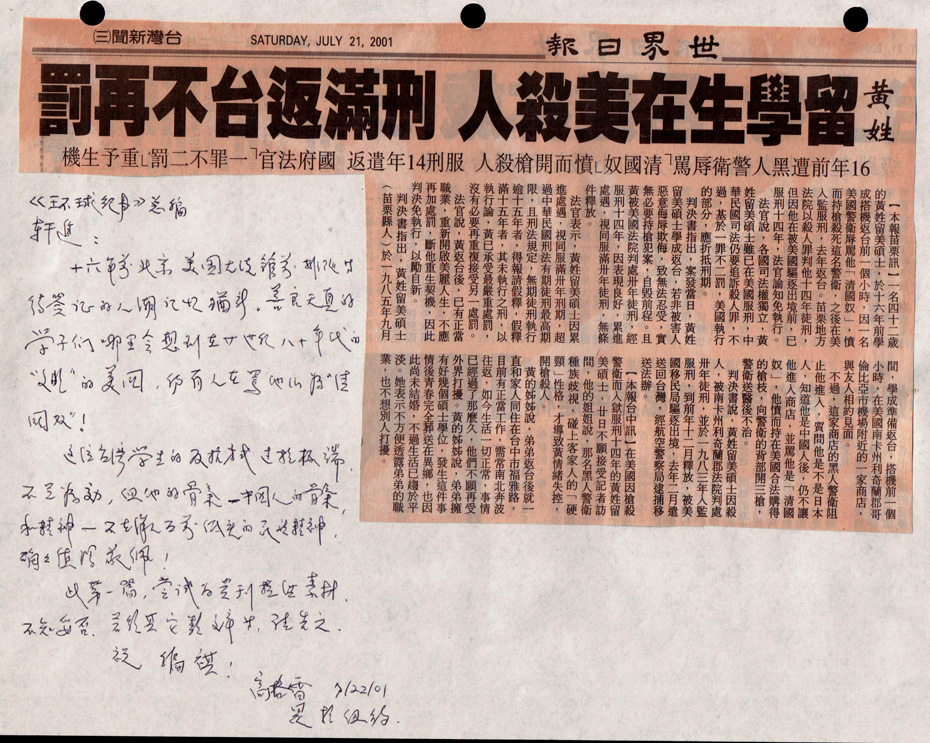 台灣新聞㈢
SATURDAY, JULY 21, 2001
世界日報
黃姓
留學生在美殺人 刑滿返台不再罰
16年前遭黑人警衛辱罵「清國奴」憤而開槍殺人 服刑14年遣返 國府法官「一罪不二罰」重予生機
【本報苗栗訊】一名四十二歲
的黃姓留美碩士,於十六年前學
成搭機返台前一個小時,因一名
美國警衛辱罵他「清國奴」,憤
而持槍殺死這名警衛,之後在美
入監服刑,去年返台。苗栗地方
法院以殺人罪判他十四年徒刑,
但因他在被美國驅逐出境前,已
服刑十四年,法官諭知免執行。
法官說,各國司法權獨立,黃
姓留美碩士雖已在美國服刑,中
華民國司法仍要追訴殺人罪,不
過,基於一罪不二罰,美國執行
的部分,應折抵刑期。
判決書指出,案發當日,黃姓
留美碩士學成返台,若非被害人
惡意侮辱欺侮,致無法忍受,實
無必要持槍犯案,自毀前程。且
黃被美國法院判處卅年徒刑,經
服刑十四年,因表現良好,累進
處遇,視同服滿卅年徒刑,無條
件釋放。
法官表示,黃姓留美碩士因累
進處遇,視同服滿卅年刑期,超
過中華民國刑法有期徒刑最高期
限,且刑法規定,無期徒刑執行
逾十五年者,得報請假釋,假釋
滿十五年者,其未執行之刑,以
執行論,黃已承受最嚴重處罰,
沒有必要再重複接受另一處罰。
法官說,黃返台後,已有正當
職業,重新開啟美麗人生,不應
再加處罰,斷他重生契機,因此
判決免執行,以勵自新。
判決書指出,黃姓留美碩士
(苗栗縣人)於一九八五年九月
間,學成準備返台,搭機前一個
小時,在美國南卡州利奇蘭郡哥
倫比亞市機場附近的一家商店,
與友人相約見面。
不過,這家商店的黑人警衛阻
止他進入,質問他是不是日本
人,知道他是中國人後,仍不讓
他進入商店,並罵他是「清國
奴」,他憤而持在美國合法購得
的槍枝,向警衛的背部開三槍,
警衛送醫後不治。
判決書說,黃姓留美碩士因殺
人,被南卡州利奇蘭郡法院判處
卅年徒刑,並於一九八三年入監
服刑,到前年十二月釋放,被美
國移民局驅逐出境,去年二月遣
送回台灣,經航空警察局逮捕移
送法辦。
【本報台中訊】在美國因槍殺
警衛而入獄服刑十四年的黃姓留
美碩士,廿日不願接受記者訪
問,他的姐姐說,那名黑人警衛
種族歧視,碰上客家人的「硬
頸」性格,才導致黃情緒失控,
開槍殺人。
黃的姊姊說,弟弟返台後就一
直和家人同住在台中市福雅路,
目前有正當工作,需常南北奔波
往返,如今生活一切正常,事情
已經過了那麼久,他們不願再受
外界打擾。黃的姊姊說,弟弟擁
有好幾個碩士學位,發生這件事
情後青春完全葬送在異鄉,也因
此尚未結婚,不過生活已趨於平
淡。她表示不方便透露弟弟的職
業,也不想別人打擾。
《环球纪事》总编
十六年前北京美国大使馆前,排队
待签证的人潮记忆犹新。善良天真的
学子们哪里会想到在廿世纪八十年代的
“文明”的美国,仍有人在骂他们为“清
国奴”!
这位台湾学生的反抗方式过于极端,
不足为効,但他的骨气—中国人的骨气
和精神—
确々值得敬佩!
此第一篇,尝试为贵刊提供素材,
不知妥否。
祝 编祺!
7/22/01
于纽约.